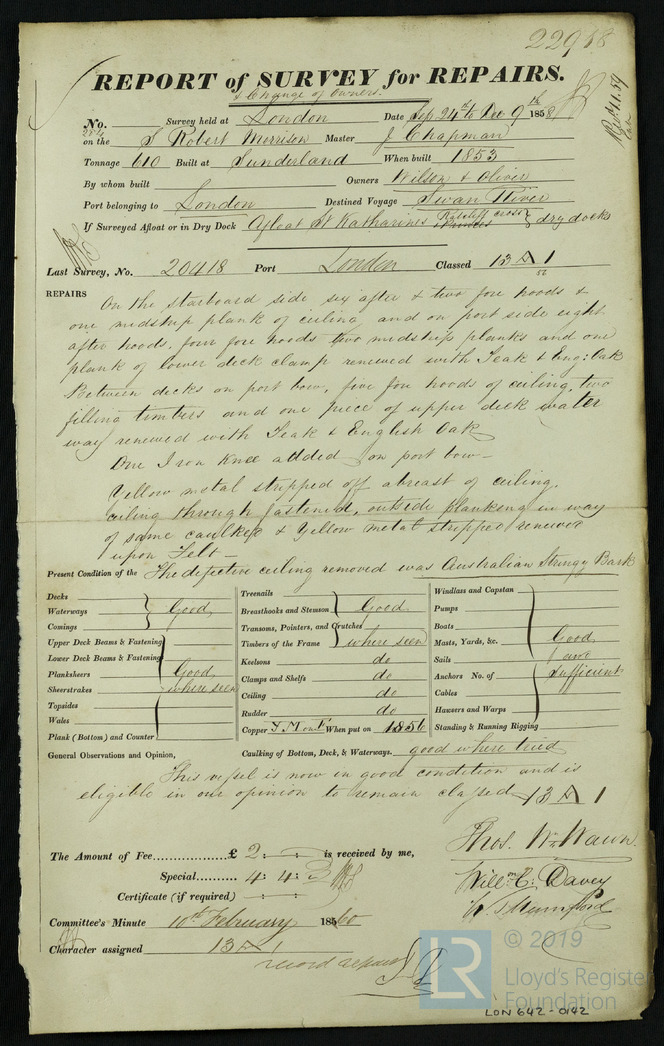 22918
REPORT of SURVEY for REPAIRS.
& Change of Owners.
No. Survey held at London Date Sep 24th to Dec 9th 1858
on the S Robert Morrison Master J Chapman
Tonnage 610 Built at Sunderland When built 1853
By whom built Owners Wilson & Oliver
Port belonging to London Destined Voyage Swan River
If Surveyed Afloat or in Dry Dock Afloat St Katharines Ratcliff cross } dry docks
Last Survey, No. 20418 Port London Classed 13 A 1
REPAIRS On the starboard side six after & two fore hoods &
one midship plank of ceiling and on port side eight
after hoods, four fore hoods two midship planks and one
plank of lower deck clamp renewed with Teak & Eng: Oak
Between decks on port bow, five fore hoods of ceiling, two
filling timbers and one piece of upper deck water
way renewed with Teak & English Oak
One Iron Knee added on port bow –
Yellow metal stripped off abreast of ceiling,
ceiling through fastened, outside planking in way
of same caulked & Yellow metal stripped renewed
upon Felt –
Present Condition of the The defective ceiling removed was Australian Stringy Bark
Decks
Waterways Good
Comings
Upper Deck Beams & Fastening
Lower Deck Beams & Fastening
Planksheers Good
Sheerstrakes where seen
Topsides
Wales
Plank (Bottom) and Counter
Treenails
Breasthooks and Stemson Good
Transoms, Pointers, and Crutches
Timbers of the Frame where seen
Keelsons do
Clamps and Shelfs do
Ceiling do
Rudder do
Copper Y.M on F When put on 1856
Windlass and Capstan
Pumps
Boats
Masts, Yards, &c. Good
Sails and
Anchors No. of Sufficient
Cables
Hawsers and Warps
Standing & Running Rigging
General Observations and Opinion, Caulking of Bottom, Deck, & Waterways. good where tried
This vessel is now in good condition and is
eligible in our opinion to remain classed 13 A 1
Thos. Wm Wawn.
The Amount of Fee £ 2 : – : – is received by me,
Special 4 : 4 : 3
Willm C. Davey
Certificate (if required)
W. Mumford
Committee's Minute 10th February 1860
Character assigned 13 A 1
record repairs
LR
© 2019
Lloyd's Register
Foundation
LON 642-0142